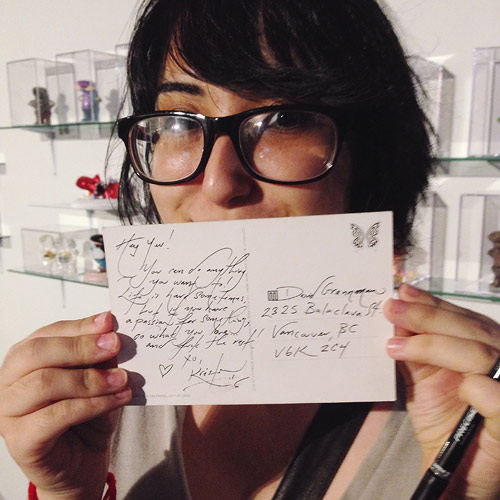 Hey You!
You can do anything
you want to.
Life is hard sometimes,
but if you have
a passion for something,
do what you want!!
and fuck the rest.
xo,
David
2325 Balaclava St
Vancouver, BC
V6K 2C4